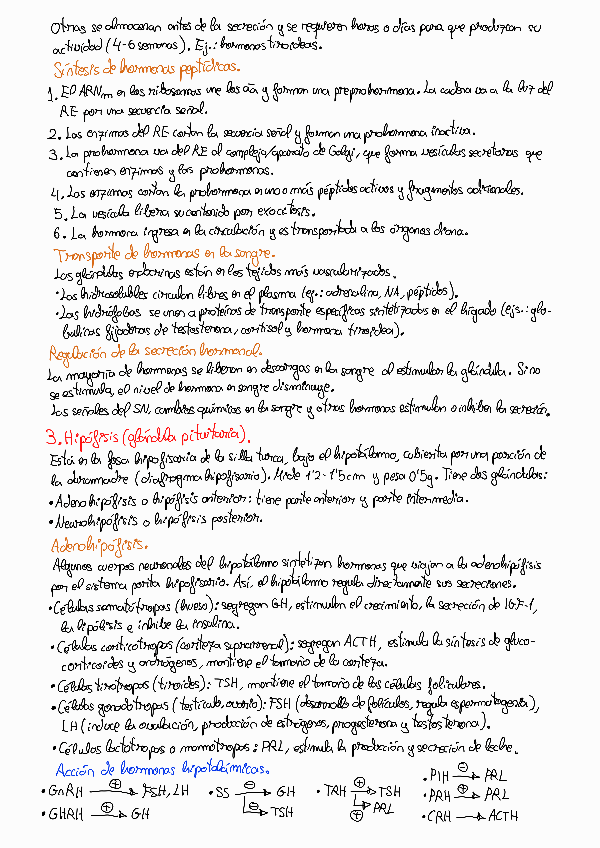 Otras se almacenan antes de la secreción y se requieren horas o días para que produzcan su
actividad (4-6 semanas). Ej.: hormonas tiroideas.
Síntesis de hormonas peptídicas.
1. El ARNm en los ribosomas une los aa y forman una preprohormona. La cadena va a la luz del
RE por una secuencia señal.
2. Las enzimas del RE cortan la secuencia señal y forman una prohormona inactiva.
3. La prohormona va del RE al complejo/aparato de Golgi, que forma vesículas secretoras que
contienen enzimas y las prohormonas.
4. Las enzimas cortan la prohormona en uno o más péptidos activos y fragmentos adicionales.
5. La vesícula libera su contenido por exocitosis.
6. La hormona ingresa en la circulación y es transportada a los órganos diana.
Transporte de hormonas en la sangre.
Las glándulas endocrinas están en los tejidos más vascularizados.
• Las hidrosolubles circulan libres en el plasma (ej.: adrenalina, NA, péptidos).
• Las hidrófobas se unen a proteínas de transporte específicas sintetizadas en el hígado (ejs.: glo-
bulinas fijadoras de testosterona, cortisol y hormona tiroidea).
Regulación de la secreción hormonal.
La mayoría de hormonas se liberan en descargas en la sangre al estimular la glándula. Si no
se estimula, el nivel de hormona en sangre disminuye.
Las señales del SN, cambios químicos en la sangre y otras hormonas estimulan o inhiben la secreción.
3. Hipófisis (glándula pituitaria).
Está en la fosa hipofisaria de la silla turca, bajo el hipotálamo, cubierta por una porción de
la duramadre (diafragma hipofisario). Mide 1'2-1'5cm y pesa 0'5g. Tiene dos glándulas:
• Adenohipófisis o hipófisis anterior: tiene parte anterior y parte intermedia.
• Neurohipófisis o hipófisis posterior.
Adenohipófisis.
Algunos cuerpos neuronales del hipotálamo sintetizan hormonas que viajan a la adenohipófisis
por el sistema porta hipofisario. Así, el hipotálamo regula directamente sus secreciones.
• Células somatótropas (hueso): segregan GH, estimulan el crecimiento, la secreción de IGF-1,
la lipólisis e inhibe la insulina.
• Células corticótropas (corteza suprarrenal): segregan ACTH, estimula la síntesis de gluco-
corticoides y andrógenos, mantiene el tamaño de la corteza.
• Células tirótropas (tiroides): TSH, mantiene el tamaño de las células foliculares.
• Células gonadótropas (testículo, ovario): FSH (desarrollo de folículos, regula espermatogenia),
LH (induce la ovulación, producción de estrógenos, progesterona y testosterona).
• Células lactótropas o mamótropas: PRL, estimula la producción y secreción de leche.
Acción de hormonas hipotalámicas.
• GnRH ⊕→ FSH, LH
• GHRH ⊕→ GH
• SS ⊖→ GH
⊖→ TSH
• TRH ⊕→ TSH
⊕→ PRL
• PIH ⊖→ PRL
• PRH ⊕→ PRL
• CRH → ACTH